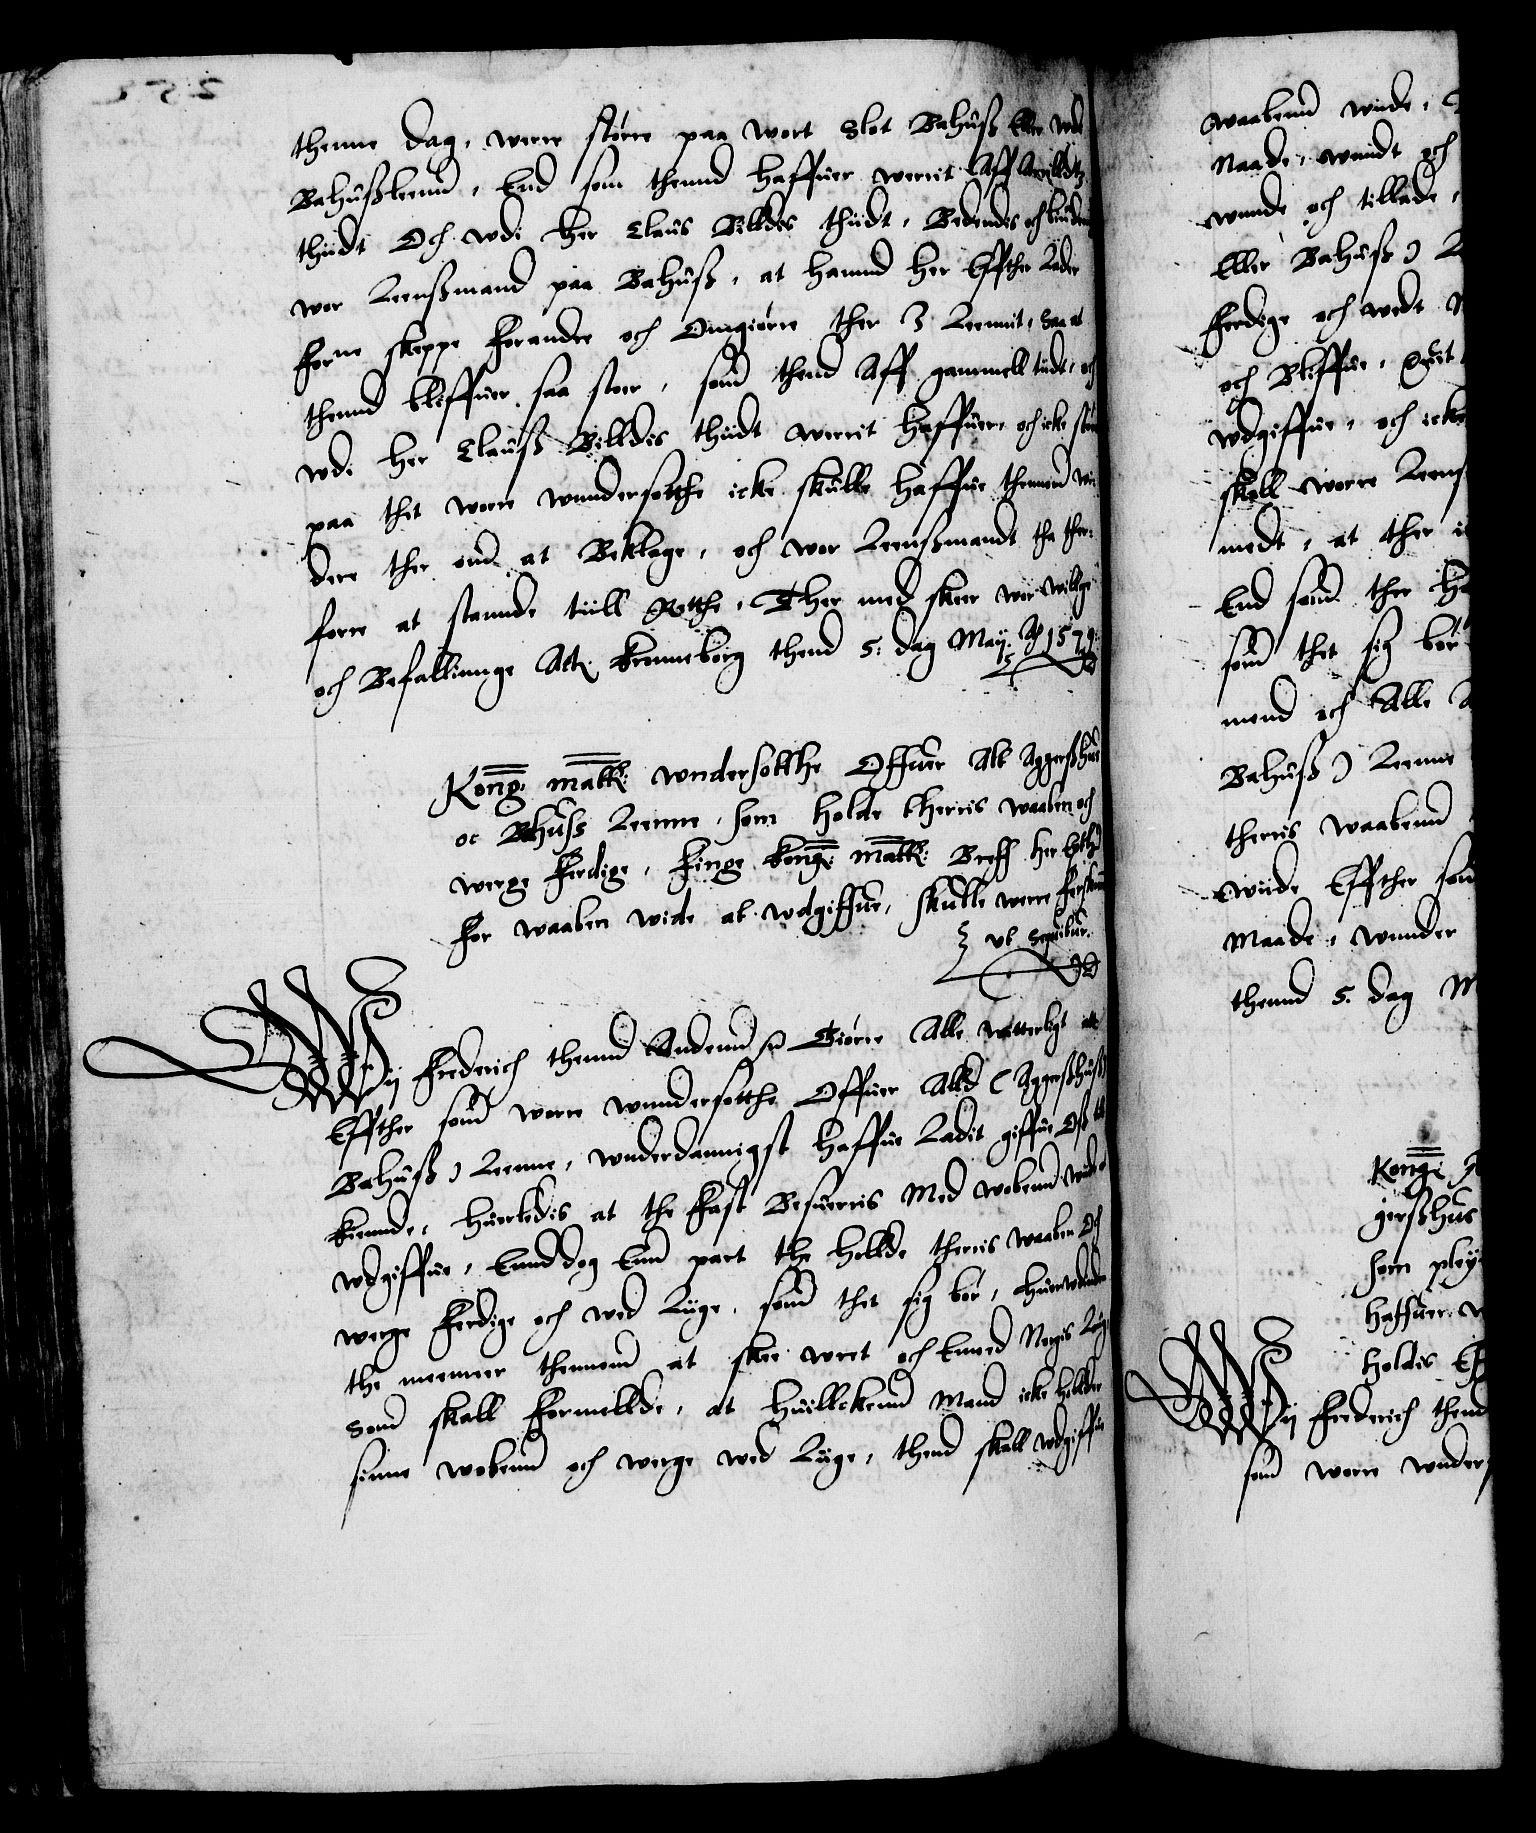 thenne dag, were større paa wort Slot Bahuss Eller wdi
Bahussleenn, End som thennd haffuer werrit Aff Arrilds
thiidt Och wdi her Claus Billdes thiidt, Bedendes och biudendis
wor Leenssmand paa Bahuss, at hannd her Effther Lader
forne skeppe forandre och Omgiørre ther I Leennit, saa at
thennd bliffuer saa stoer, som thend Aff gammell tiidt, och
wdi her Clauss Billdis thiidt werrit haffuer, och icke større
paa thet worre wnndersotthe icke skulle haffue thennom wii-
dere ther om at Beklage, och wor Leenssmandt tha ther-
forre at stannde tiill Retthe, Ther med skeer wor williige
och Befallinnge Actt Kronneborg thend 5. dag May Ao 1579.
Kong: matt: wndersotthe Offuer Alt Aggersshuus
oc Bahuss Leenne, som holde therris waaben och
werge ferdige, finge kong: matt: Breff her Effther
for waaben wide at wdgiffue, skulle werre forskaanit
vt sequitur.
Wij Frederich thennd Andenn etc Giørre Alle witterligt att
Effther som worre wnndersotthe Offuer Altt (Aggersshuss
Bahuss) Leenne, wnderdannigst haffue Ladit giffue Oss till
kiennde, huorledis at the fast Besuerris Med wobenn wiide at
wdgiffue, Enndog Enn part the hollde therris waaben Och
werge ferdige och wed Liige, som thet sig bør, huorwdinden
the meener thennom at skee wret och Emod Norgis Lug
som skall formellde, at huillckenn Mand icke hollder
sinne wobenn och werge wed Liige, thend skall wdgiffue
waabenn wiide,
Naade, wnndt och
wnnde och tillade,
Eller Bahuss)
ferdige och wedt
och Bliffue, Quit
wdgiffue, och icke
skall worre Leens
medt, at ther
End som ther
som thet sig bør
mend och Alle
Bahuss) Leenne
therris waabenn
wiide Effther som
Maade, wnnder
thennd 5. dag M
Kong:
gersshus
som pley
haffuer
holdis
Wij Frederich thend
som worre wnders